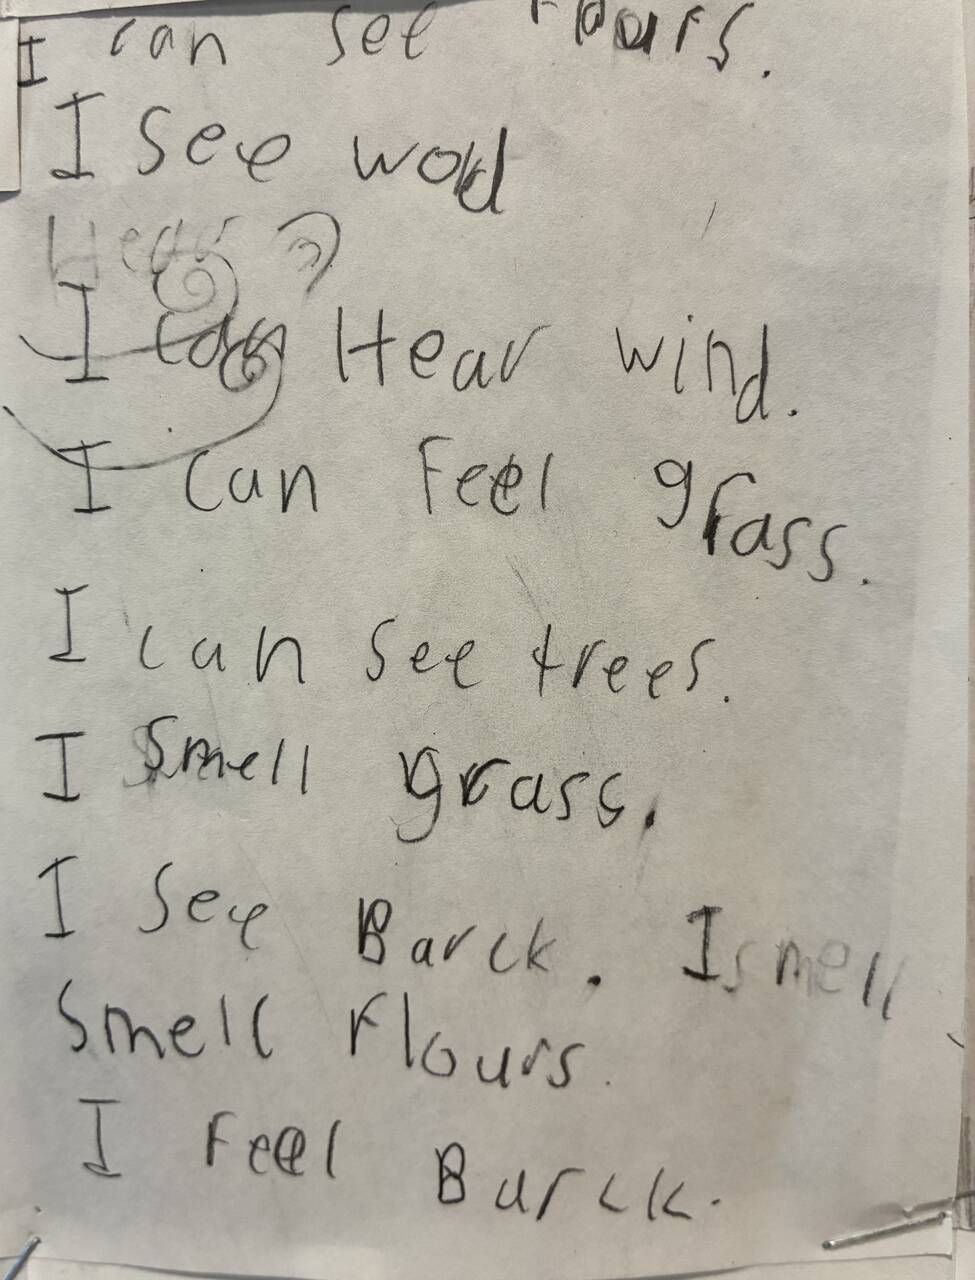 I can see
I see wod
Hear
I can Hear wind.
I can Feel grass.
I can see trees.
I Smell grass.
I See Barck. I smell
Smell Flours.
I Feel Barck.